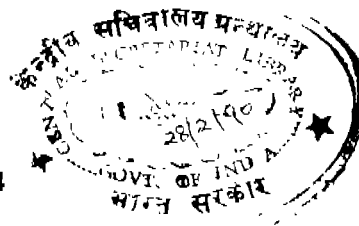 केन्द्रीय सचिवालय ग्रन्थालय
CENTRAL SECRETARIAT LIBRARY
28/2/90
GOVT. OF INDIA
भारत सरकार